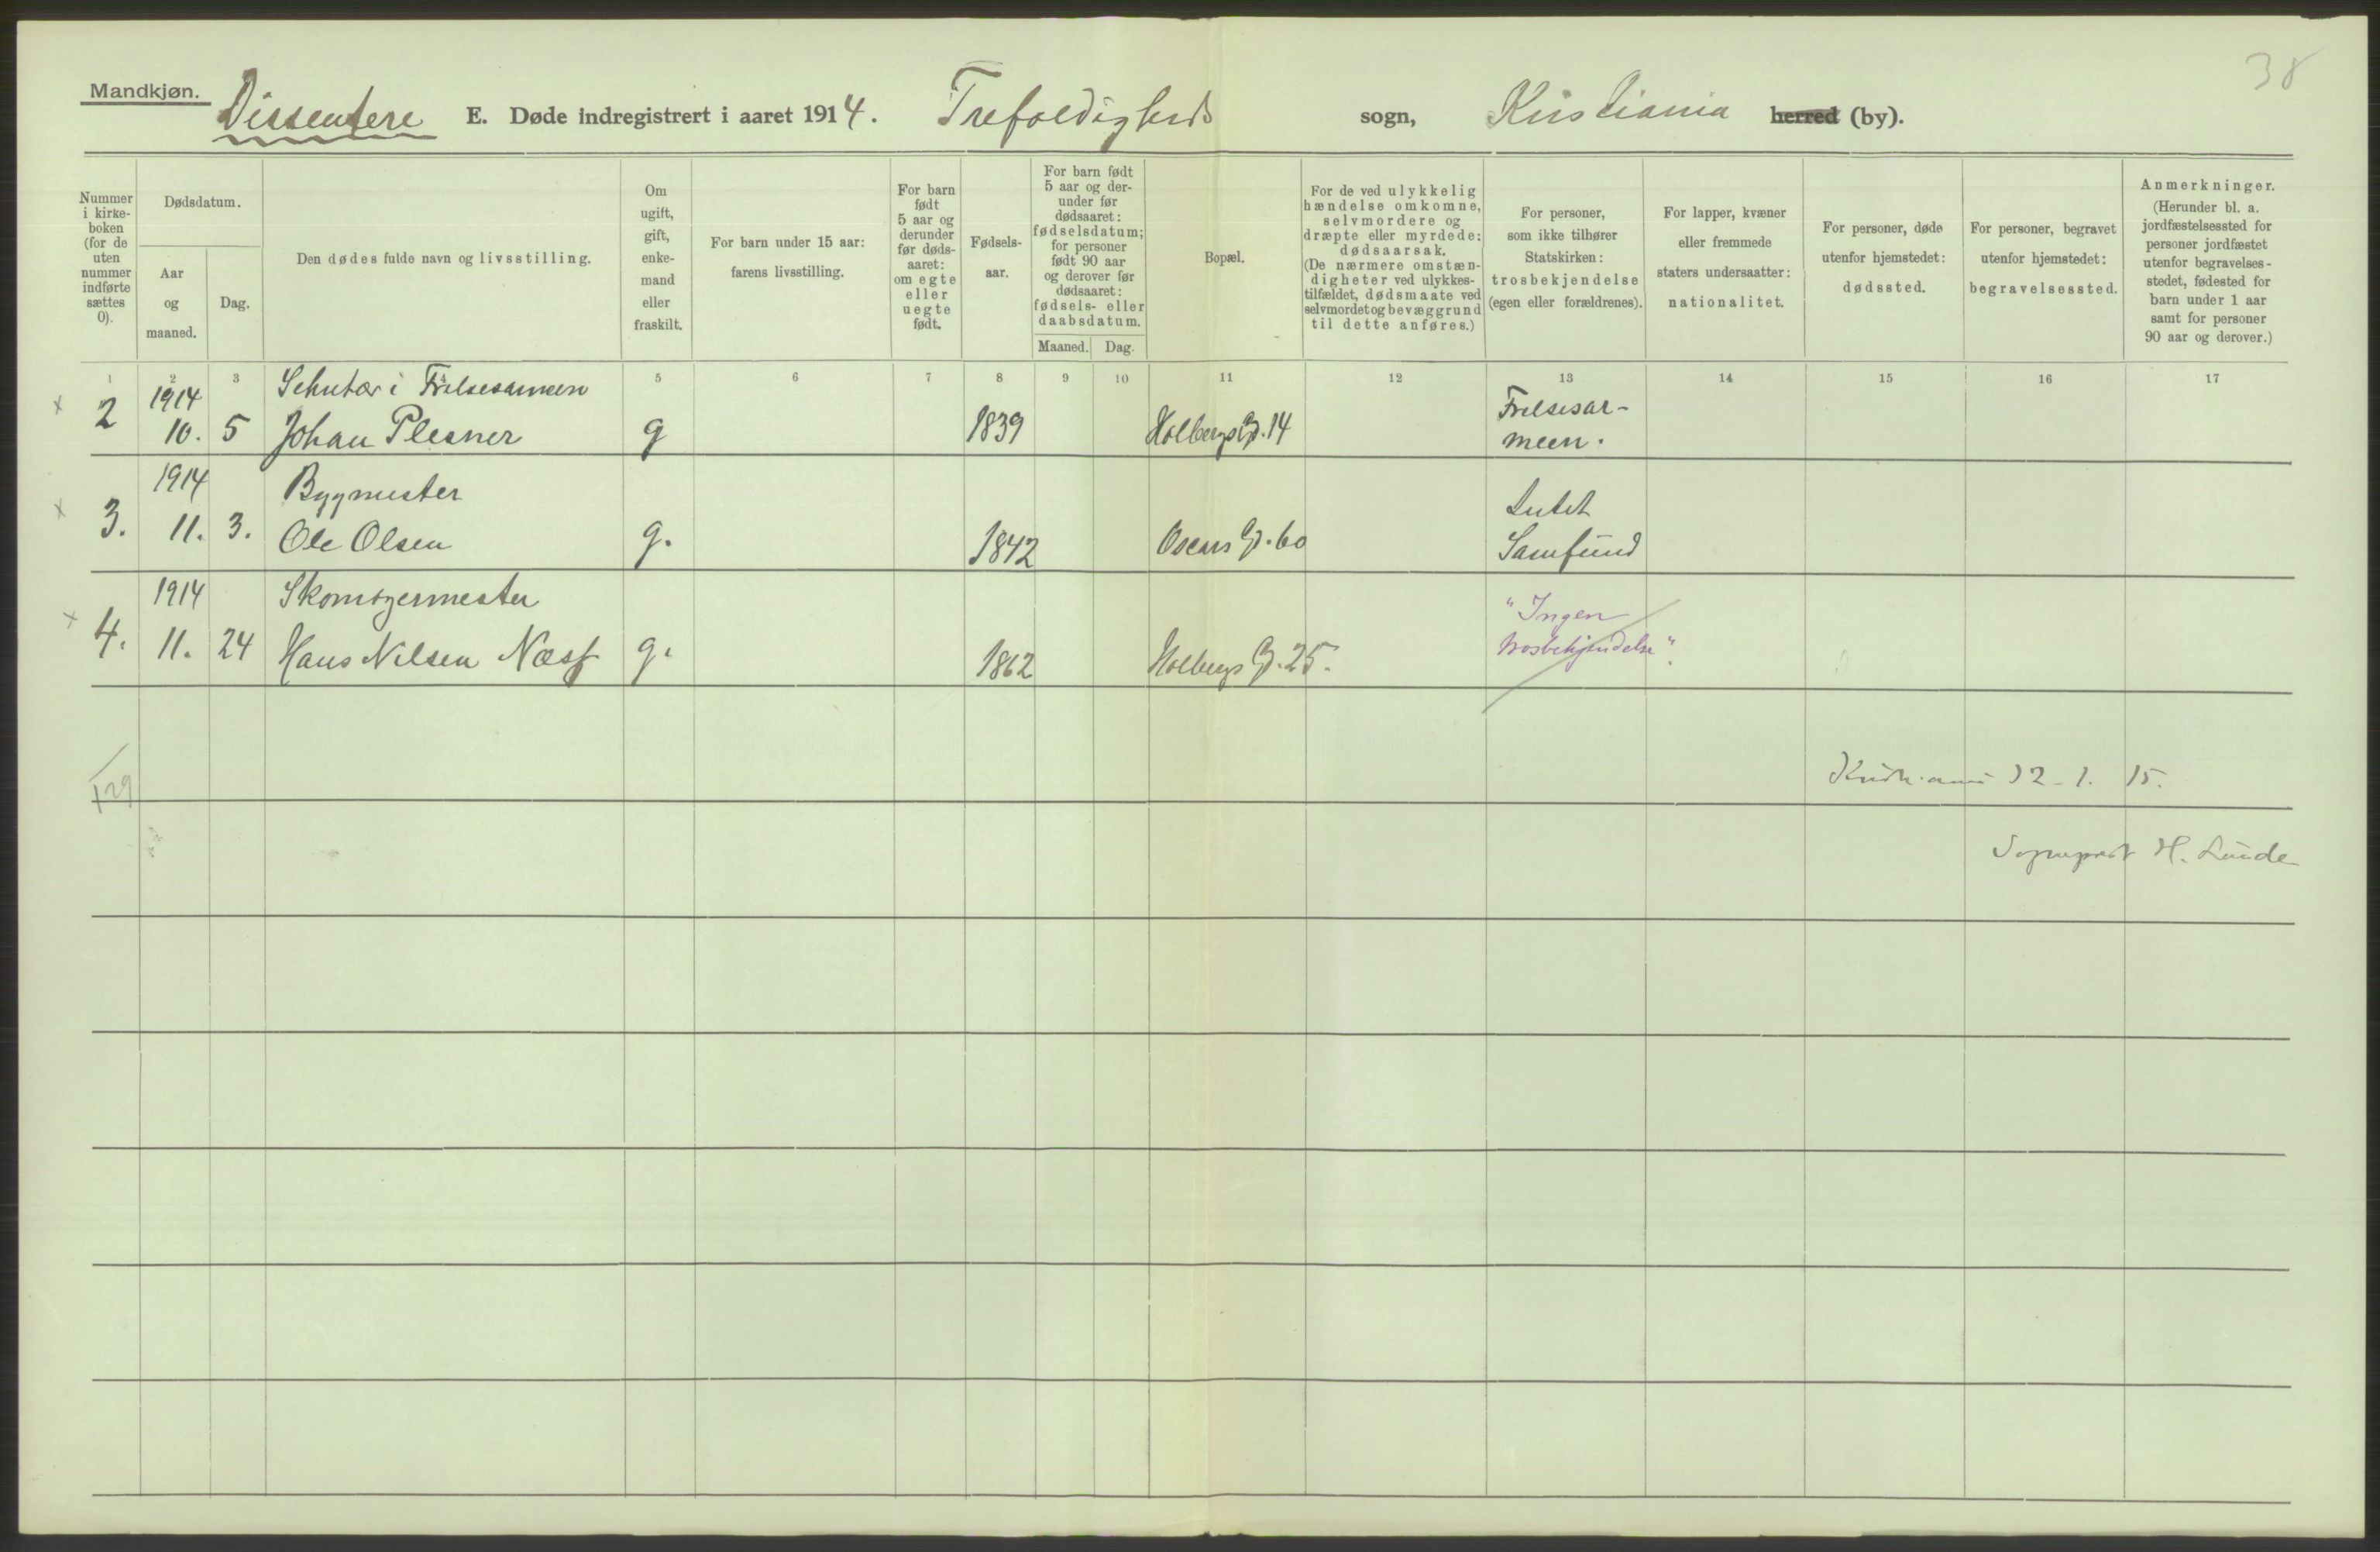 38
Mandkjøn.
Dissentere E. Døde indregistrert i aaret 1914. Trefoldigheds sogn, Kristiania herred (by).
Nummer i kirke- boken (for de uten nummer indførte sættes 0).
Dødsdatum.
Aar og maaned.
Dag.
Den dødes fulde navn og livsstilling.
Om ugift, gift, enke- mand eller fraskilt.
For barn under 15 aar: farens livsstilling.
For barn født 5 aar og derunder før døds- aaret: om egte eller uegte født.
Fødsels- aar.
For barn født 5 aar og der- under før dødsaaret: fødselsdatum; for personer født 90 aar og derover før dødsaaret: fødsels- eller daabsdatum.
Maaned. Dag.
Bopæl.
For de ved ulykkelig hændelse omkomne, selvmordere og dræpte eller myrdede: dødsaarsak. (De nærmere omstæn- digheter ved ulykkes- tilfældet, dødsmaate ved selvmordet og bevæggrund til dette anføres.)
For personer, som ikke tilhører Statskirken: trosbekjendelse (egen eller forældrenes).
For lapper, kvæner eller fremmede staters undersaatter: nationalitet.
For personer, døde utenfor hjemstedet: dødssted.
For personer, begravet utenfor hjemstedet: begravelsessted.
Anmerkninger. (Herunder bl. a. jordfæstelsessted for personer jordfæstet utenfor begravelses- stedet, fødested for barn under 1 aar samt for personer 90 aar og derover.)
1 2 3 5 6 7 8 9 10 11 12 13 14 15 16 17
x 1914 Sekretær i Frelsesarmeen Frelsesar-
2 10. 5 Johan Plesner g 1839 Holbergs G. 14 meen.
x 1914 Bygmester Lutet
3. 11. 3. Ole Olsen g. 1842 Oscars G. 60 Samfund
x 1914 Skomagermester "Ingen
4. 11. 24 Hans Nilsen Næss g. 1862 Holbergs G. 25. trosbekjendelse".
129
Kristiania 12-1. 15.
Sogneprest H. Lunde